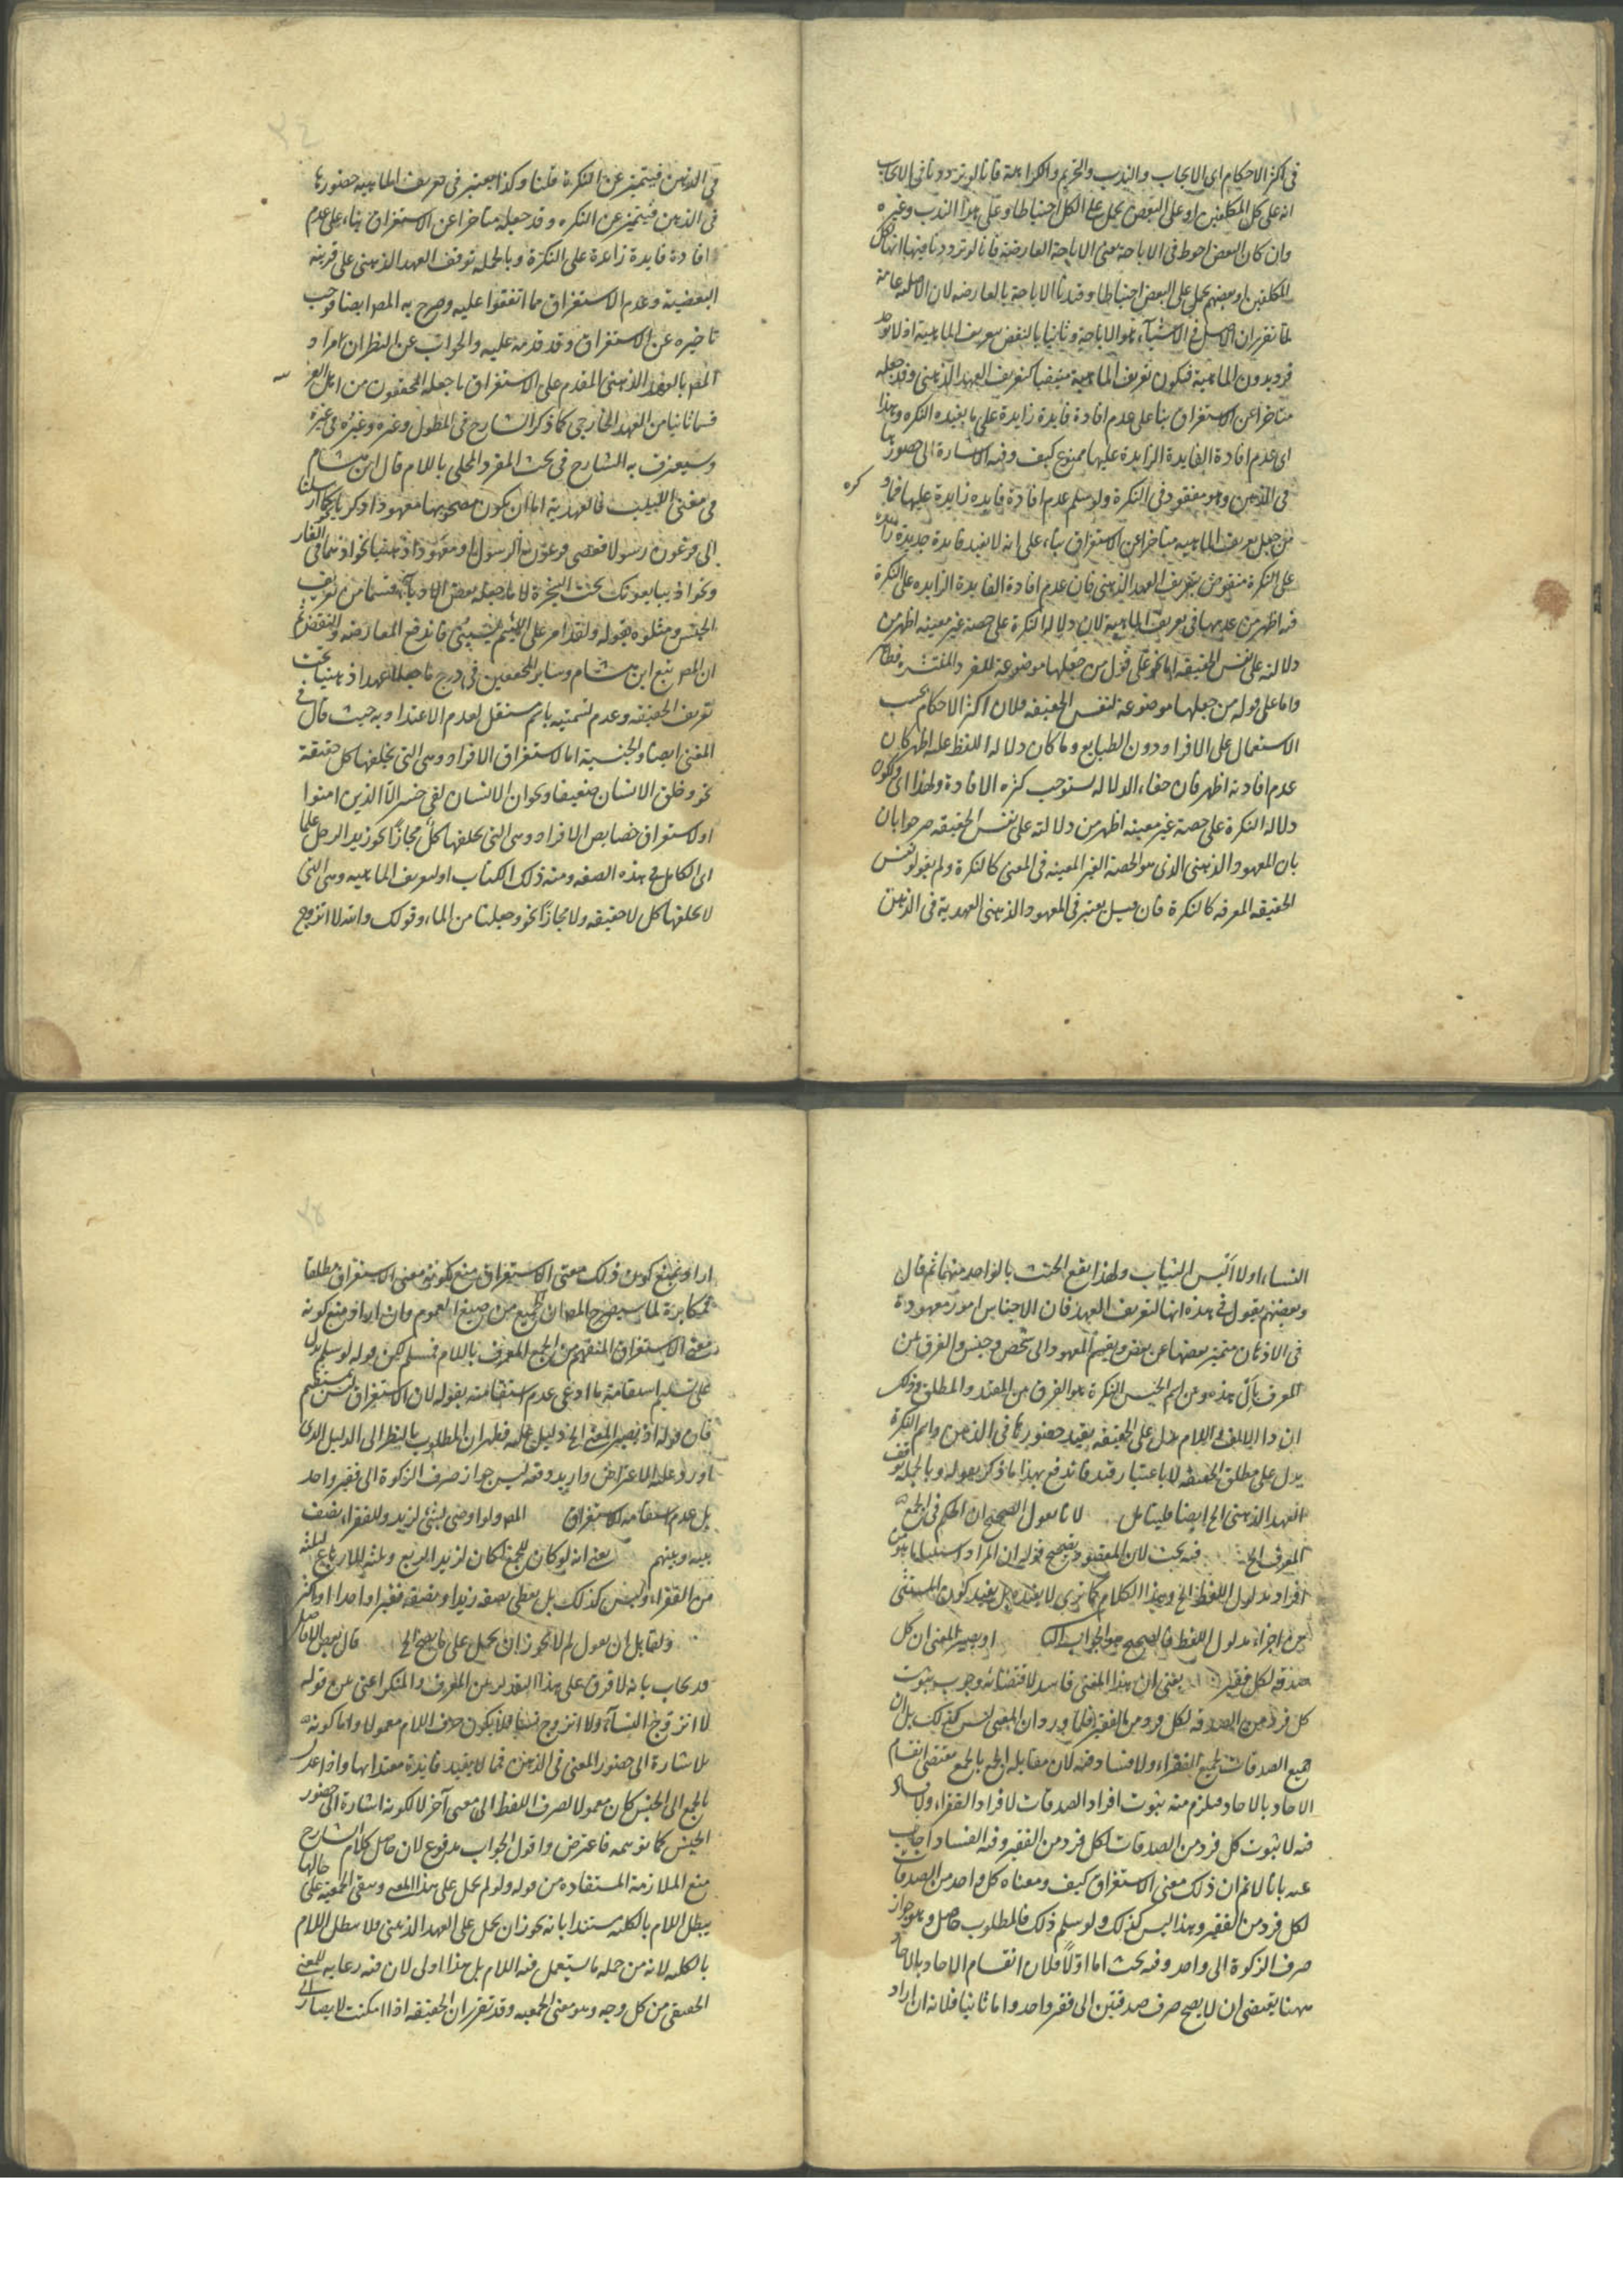 في اكثر الاحكام اي الايجاب والندب والتحريم والكراهة فانا لو ترددنا في الايجاب
انه على كل المكلفين او على البعض يحمل على الكل احتياطا وعلى هذا الندب وغيره
وان كان البعض احوط في الاباحة يعني الاباحة العارضة فانا لو ترددنا فيها انها لكل
المكلفين او بعضهم يحمل على البعض احتياطا وقيدنا الاباحة بالعارضه لان الاصلية عامة
لما تقرر ان الاصل في الاشياء هو الاباحة وثانيا بالنقض بتعريف الماهية اذ لا يوجد
فرد بدون الماهية فيكون تعريف الماهية متيقنا كتعريف العهد الذهني وقد جعله
متاخرا عن الاستغراق بناء على عدم افادة فايدة زايدة على ما يفيده النكره وهذا
اي عدم افادة الفايدة الزايدة عليها ممنوع كيف وفيه الاشارة الى حضورها
في الذهن وهو مفقود في النكرة ولو سلم عدم افادة فايده زايدة عليها فما
من جعل تعريف الماهيه متاخرا عن الاستغراق بناء على انه لا يفيد فايدة جديدة زايدة
على النكرة منقوض بتعريف العهد الذهني فان عدم افادة الفايدة الزايده على النكرة
فيه اظهر من عدمها في تعريف الماهية لان دلالة النكرة على حصة غير معينه اظهر من
دلالته على نفس الحقيقه اما على قول من جعلها موضوعة للفرد المنتشر فظاهر
واما على قوله من جعلها موضوعة لنفس الحقيقه فلان اكثر الاحكام بحسب
الاستعمال على الافراد دون الطبايع وما كان دلالة اللفظ عليه اظهر كان
عدم افادته اظهر فان خفاء الدلاله يستوجب كثره الافادة ولهذا اي ولكون
دلالة النكرة على حصة غير معينه اظهر من دلالته على نفس الحقيقه صرحوا بان
بان المعهود الذهني الذي هو الحصة الغير المعينه في المعنى كالنكرة ولم يقولوا نفس
الحقيقه المعرفه كالنكرة فان قيل يعتبر في المعهود الذهني العهدية في الذهن
في الذهن فيتميز عن النكرة قلنا وكذا يعتبر في تعريف الماهيه حضورها
في الذهن فيتميز عن النكره وقد جعله متاخرا عن الاستغراق بناء على عدم
افادة فايدة زايدة على النكرة وبالجمله توقف العهد الذهني على قرينه
البعضية وعدم الاستغراق مما اتفقوا عليه وصرح به المص ايضا فوجب
تاخيره عن الاستغراق وقد قدمه عليه والجواب عن النظر ان مراد
المص بالعهد الذهني المقدم على الاستغراق ما جعله المحققون من اهل العربية
قسما ثانيا من العهد الخارجي كما ذكر الشارح في المطول وغيره وغيره في غيره
وسيعترف به الشارح في بحث المفرد المحلى باللام قال ابن هشام
في مغني اللبيب فالعهدية اما ان يكون مصحوبها معهودا ذكريا كما ارسلنا
الى فرعون رسولا فعصى فرعون الرسول او معهودا ذهنيا نحو اذ هما في الغار
ونحو اذ يبايعونك تحت الشجرة لا ما جعله بعض الادباء قسما من تعريف
الجنس ومثلوه بقوله ولقد امر على اللئيم يسبني فاندفع المعارضه والنقض ثم
ان المص تبع ابن هشام وساير المحققين في درج ما جعلا عهدا ذهنيا تحت
تعريف الحقيقه وعدم تسميته باسم مستقل لعدم الاعتداد به حيث قال في
المغني ايضا والجنسية اما لاستغراق الافراد وهي التي يخلفها كل حقيقة
نحو وخلق الانسان ضعيفا ونحو ان الانسان لفي خسر الا الذين امنوا
او لاستغراق خصايص الافراد وهي التي يخلفها كل مجازا نحو زيد الرجل علما
اي الكامل في هذه الصفه ومنه ذلك الكتاب او لتعريف الماهيه وهي التي
لا يخلفها كل لا حقيقه ولا مجازا نحو وجعلنا من الماء وقولك والله لا اتزوج
النساء او لا البس الثياب ولهذا يقع الحنث بالواحد منها ثم قال
وبعضهم يقول في هذه انها لتعريف العهد فان الاجناس امور معهودة
في الاذهان متميز بعضها عن بعض ويقسم المعهود الى شخص وجنس والفرق بين
المعرف بال هذه وبين اسم الجنس النكرة هو الفرق بين المقيد والمطلق وذلك
ان ذا الالف واللام يدل على الحقيقه بقيد حضورها في الذهن واسم النكرة
يدل على مطلق الحقيقه لا باعتبار قيد فاندفع بهذا ما ذكر بقوله وبالجملة توقف
العهد الذهني الخ ايضا فليتامل لانا نقول الصحيح ان الحكم في الجمع
المعرف الخ فيه بحث لان المقصود تصحيح قوله ان المراد استثناء ما هو من
افراد مدلول اللفظ الخ وهذا الكلام كما ترى لا يفيده بل يفيد كون المستثنى
من اجزاء مدلول اللفظ فالصحيح هو الجواب الثا او يصير المعنى ان كل
صدقه لكل فقير يعني ان هذا المعنى فاسد لاقتضائه وجوب ثبوت
كل فرد من الصدقه لكل فرد من الفقير فلما ورد ان المعنى ليس كذلك بل ان
جميع الصدقات لجميع الفقراء ولا فساد فيه لان مقابلة الجمع بالجمع يقتضي انقسام
الاحاد بالاحاد فيلزم منه ثبوت افراد الصدقات لافراد الفقراء ولا فساد
فيه لا ثبوت كل فرد من الصدقات لكل فرد من الفقير وفيه الفساد اجاب
عنه بانا لا نم ان ذلك معنى الاستغراق كيف ومعناه كل واحد من الصدقات
لكل فرد من الفقير وهذا ليس كذلك ولو سلم ذلك فالمطلوب حاصل وهو جواز
صرف الزكوة الى واحد وفيه بحث اما اولا فلان انقسام الاحاد بالاحاد
ههنا يقتضي ان لا يصح صرف صدقتين الى فقير واحد واما ثانيا فلانه ان اراد
اراد بمنع كون ذلك معنى الاستغراق منع كونه معنى الاستغراق مطلقا
فمكابرة لما سيصرح المص ان الجمع من صيغ العموم وان اراد منع كونه
معنى الاستغراق المنفهم من الجمع المعرف باللام فمسلم لكن قوله لو سلم يدل
على تسليم استقامة ما ادعى عدم استقامته بقوله لان الاستغراق ليس بمستقيم
فان قوله اذ يصير المعنى الخ دليل عليه فظهر ان المطلوب بالنظر الى الدليل الذي
اورد عليه الاعتراض واريد دفعه ليس جواز صرف الزكوة الى فقير واحد
بل عدم استقامة الاستغراق المص ولو اوصى بشئ لزيد وللفقراء ينصف
بينه وبينهم يعني انه لو كان للجمع لكان لزيد الربع وثلثه الارباع لثلثه
من الفقراء وليس كذلك بل يعطى نصفه زيدا ونصفه فقيرا واحدا او اكثر
ولقايل ان يقول لم لا يجوز ان يحمل على ما يصح الخ قال بعض الافاضل
قد يجاب بانه لا فرق على هذا التقدير بين المعرف والمنكر اعني بين قوله
لا اتزوج النساء ولا اتزوج نساء فلا يكون حرف اللام معمولا واما كونه
للاشارة الى حضور المعنى في الذهن فمما لا يفيد فايدة معتدا بها واذا عدل
بالجمع الى الجنس كان معمولا لصرف اللفظ الى معنى آخر لا لكونه اشارة الى حضور
الجنس كما توهمه فاعترض واقول الجواب مدفوع لان حاصل كلام الشارح
منع الملازمة المستفاده من قوله ولو لم يحمل على هذا المعنى وتبقى الجمعية على حالها
يبطل اللام بالكليه مستندا بانه يجوز ان يحمل على العهد الذهني ولا يبطل اللام
بالكليه لانه من جمله ما يستعمل فيه اللام بل هذا اولى لان فيه رعايه للمعنى
الحقيقي من كل وجه وهو معنى الجمعيه وقد تقرر ان الحقيقه اذا امكنت لا يصار الى